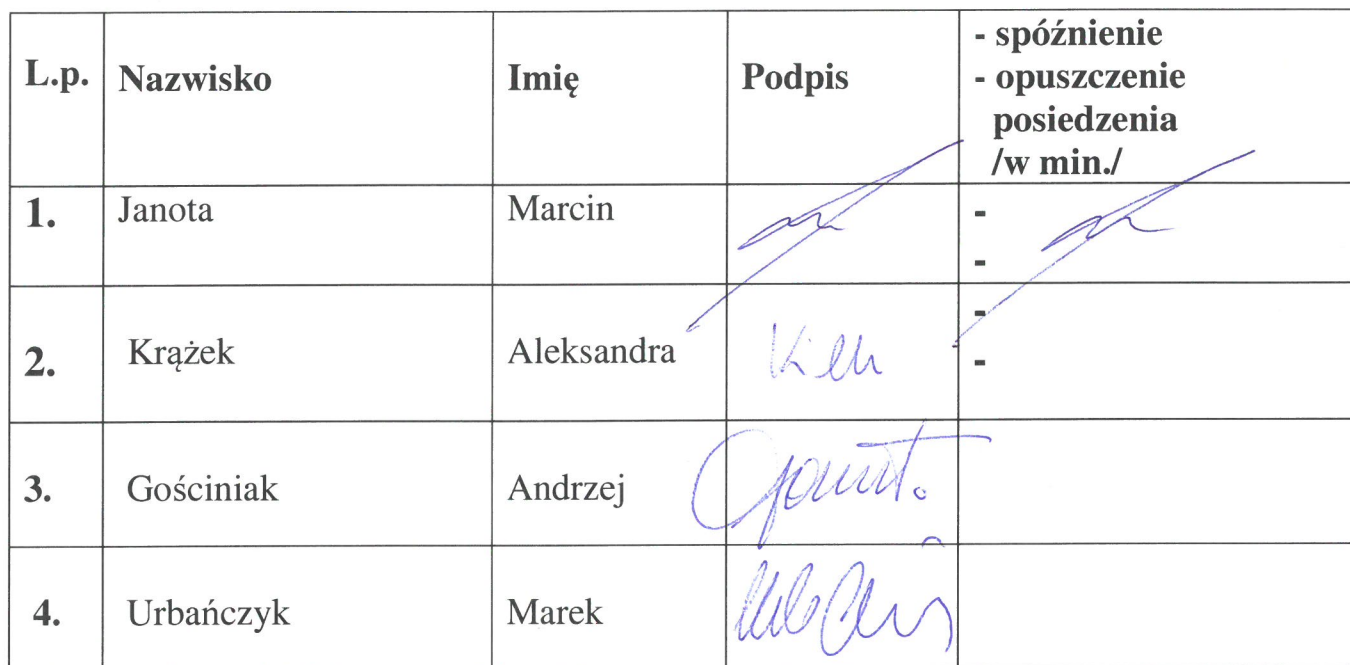 L.p. Nazwisko Imię Podpis - spóźnienie
- opuszczenie
posiedzenia
/w min./
1. Janota Marcin -
-
2. Krążek Aleksandra -
-
3. Gościniak Andrzej
4. Urbańczyk Marek